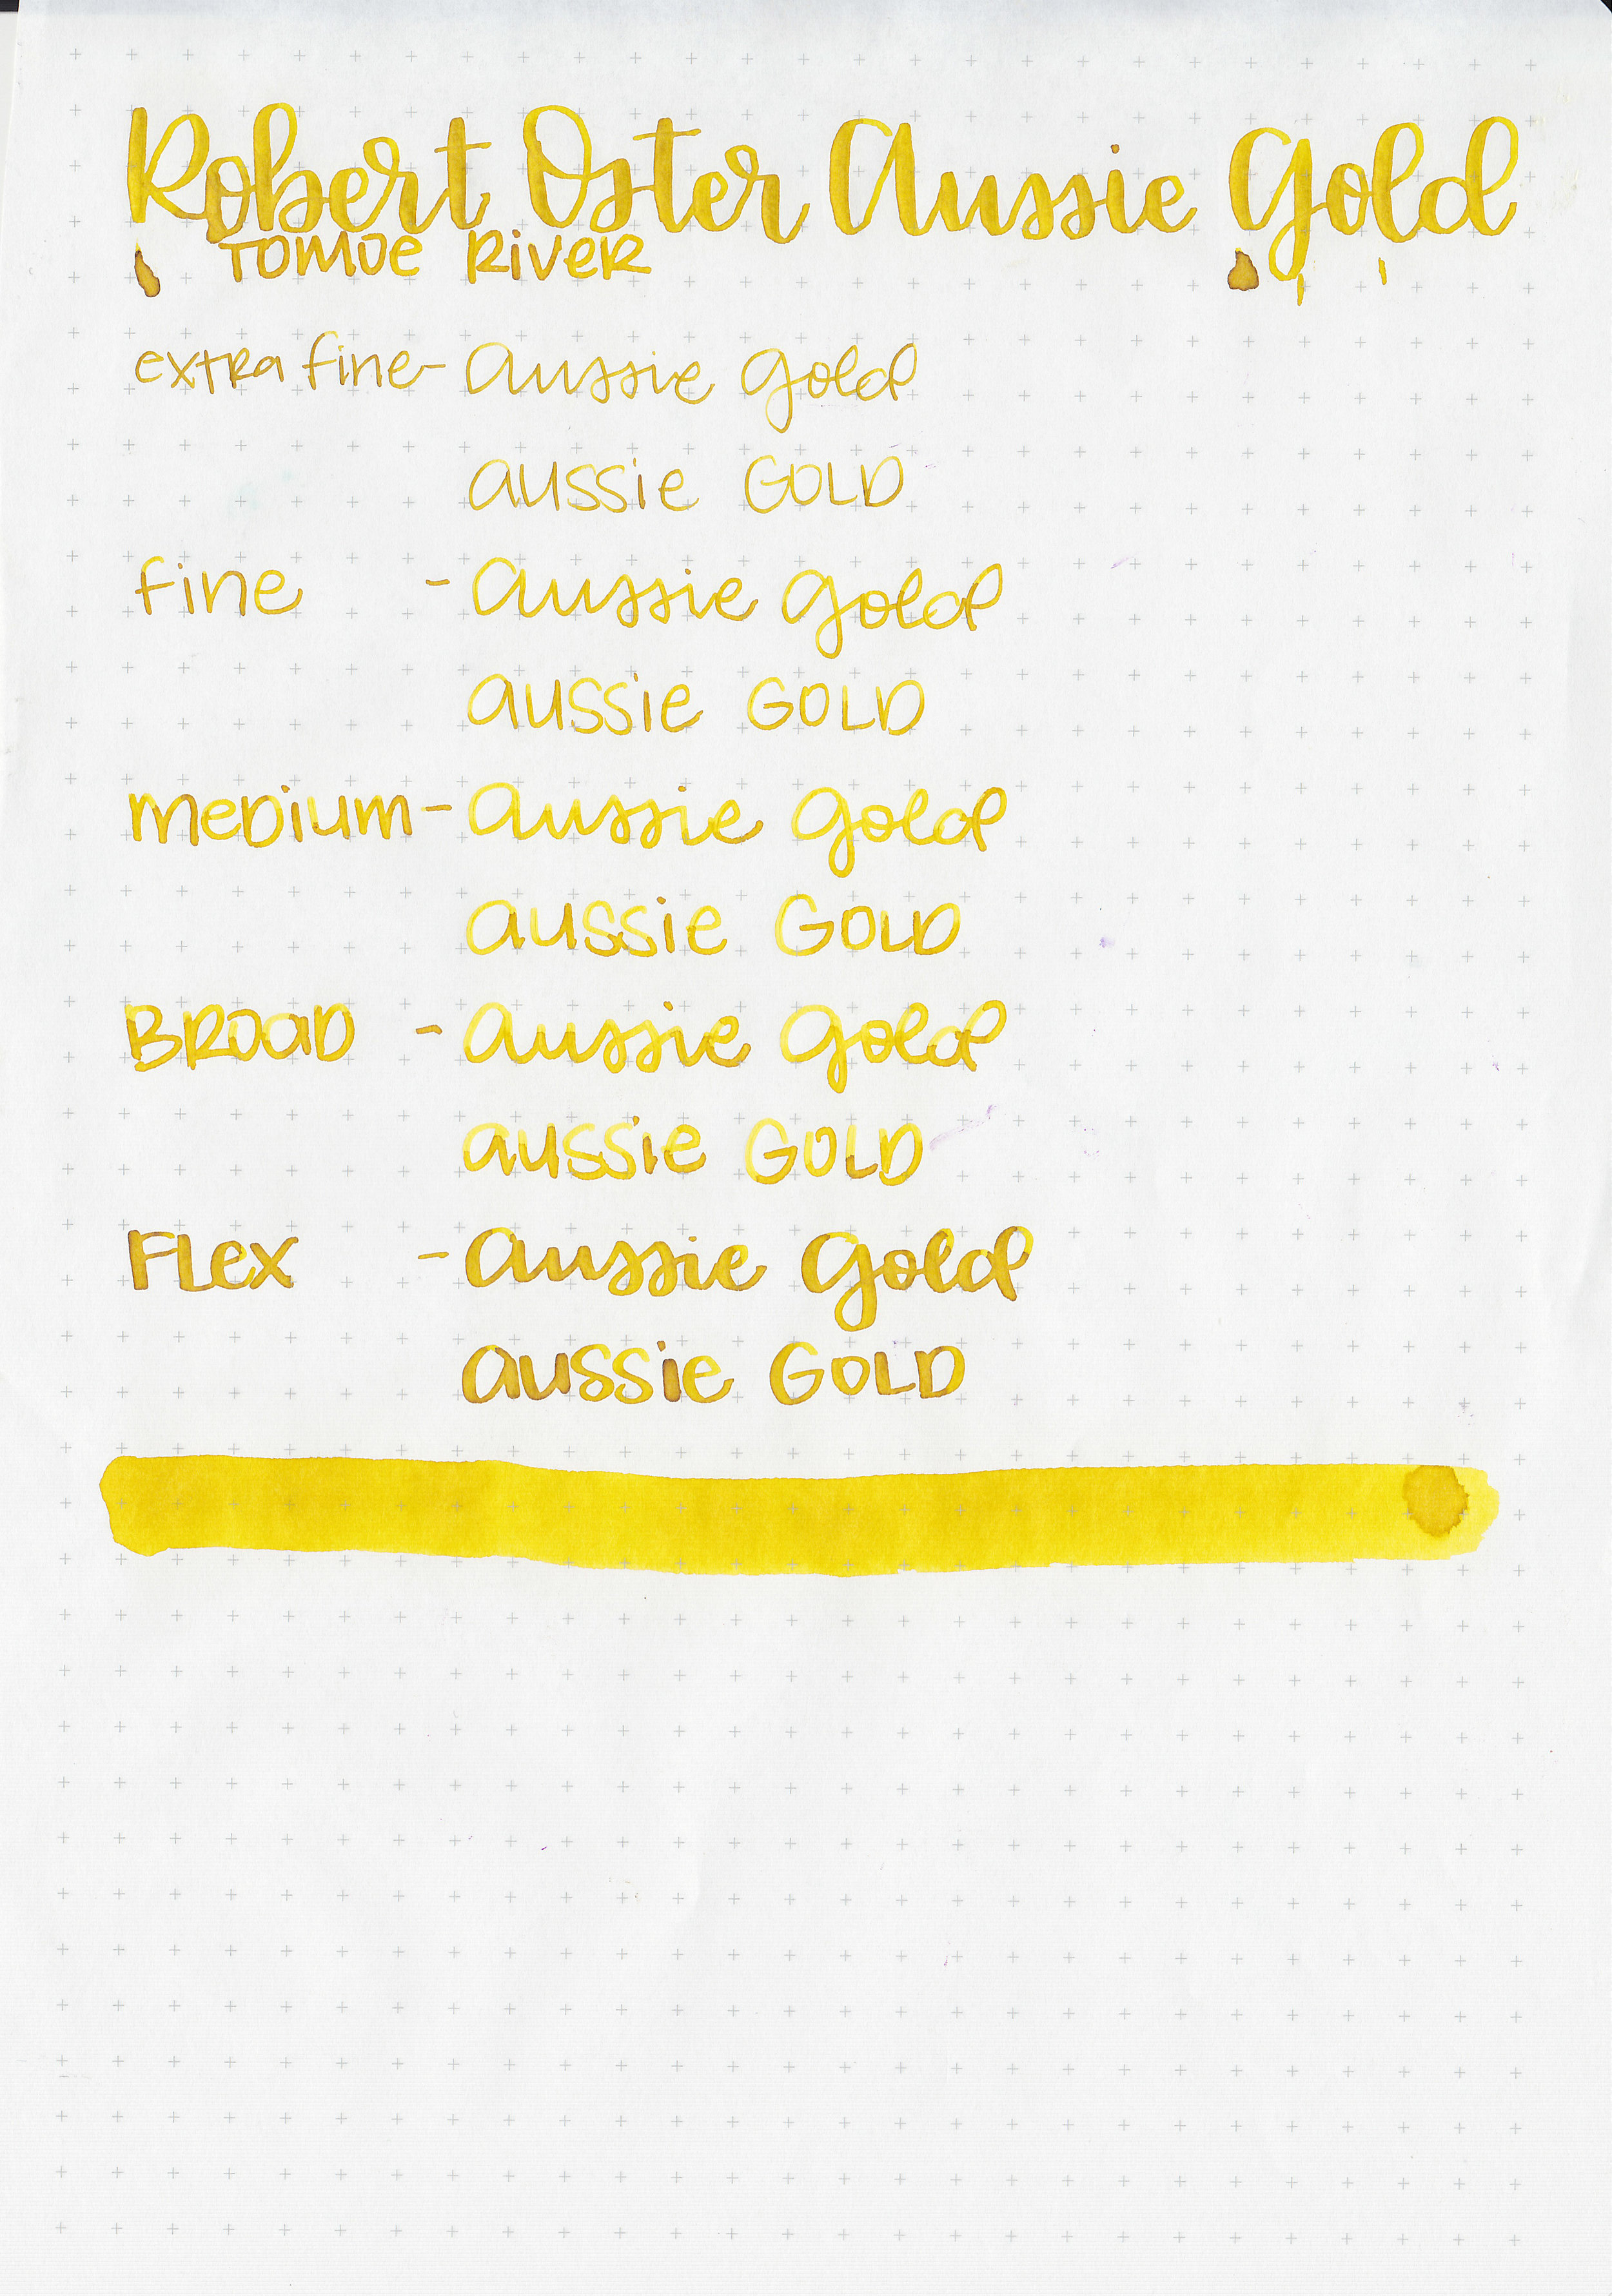 Robert Oster Aussie Gold
TOMOE RIVER
extra fine- aussie gold
aussie GOLD
fine - aussie gold
aussie GOLD
medium- aussie gold
aussie GOLD
BROAD - aussie gold
aussie GOLD
FLex - aussie gold
aussie GOLD